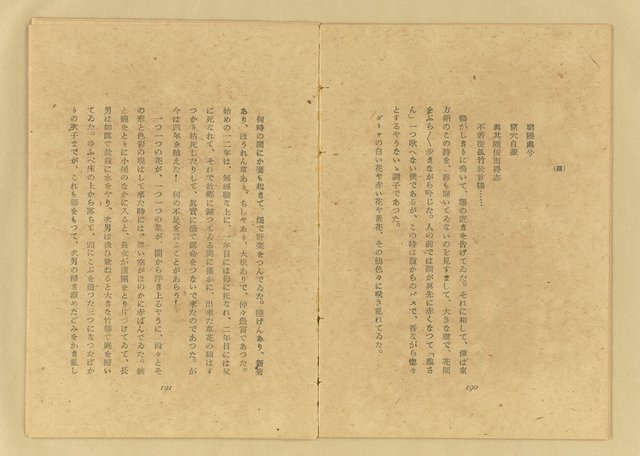 窮隱處兮
窟穴自藏
與其隨佞而得志
不若從孤竹於首陽……
(四)
鷄がしきりに鳴いて、陽の近きを告げてゐた。それに和して、僕は東
方朔のこの詩を、誰も聞いてゐないのを見すまして、大きな聲で、花園
をぶら〳〵步きながら吟じた。人の前では顔が眞先に赤くなつて「鷄さ
ん」一つ歌へない僕であるが、この時は腹からのバスで、吾ながら惚々
とするやうないゝ調子であつた。
ダリヤの白い花や赤い花や黄花、その他色々に咲き亂れてゐた。
190
何時の間にか妻も起きて、畑で野菜をつんでゐた。隱げんあり、新菊
あり、ほうれん草あり、ちしやあり、大根ありで、仲々豊富であつた。
始めの一二年は、無經驗な上に、一年目には母に死なれ、二年目には父
に死なれて、それで故鄕に歸つてゐる間に僅かに出來た草花の類はす
つかり枯死したりして、眞實に慘で露命をつないで來たのであつた。が
今は四年を越えた!何の不足を言ふことがあらう!
一つ一つの花が、一つ一つの葉が、闇から浮き上るやうに、段々とそ
の形と色彩の現はして來た時には、黑い空がほのかに赤ばんでゐた。鍬
と鎌をとりに小屋のなかに入ると、長女が蒲團をとり片づけてゐて、長
男は如露で盆栽に水をやり、次男は後ひ兼ねると大きな竹箒で庭を掃い
てゐた。ゆふべ床の上から落ちて、頭にこぶを造つた三つになつたばか
りの次子までが、これも箒をもつて、次男の掃き溜めたごみをかき亂し
191